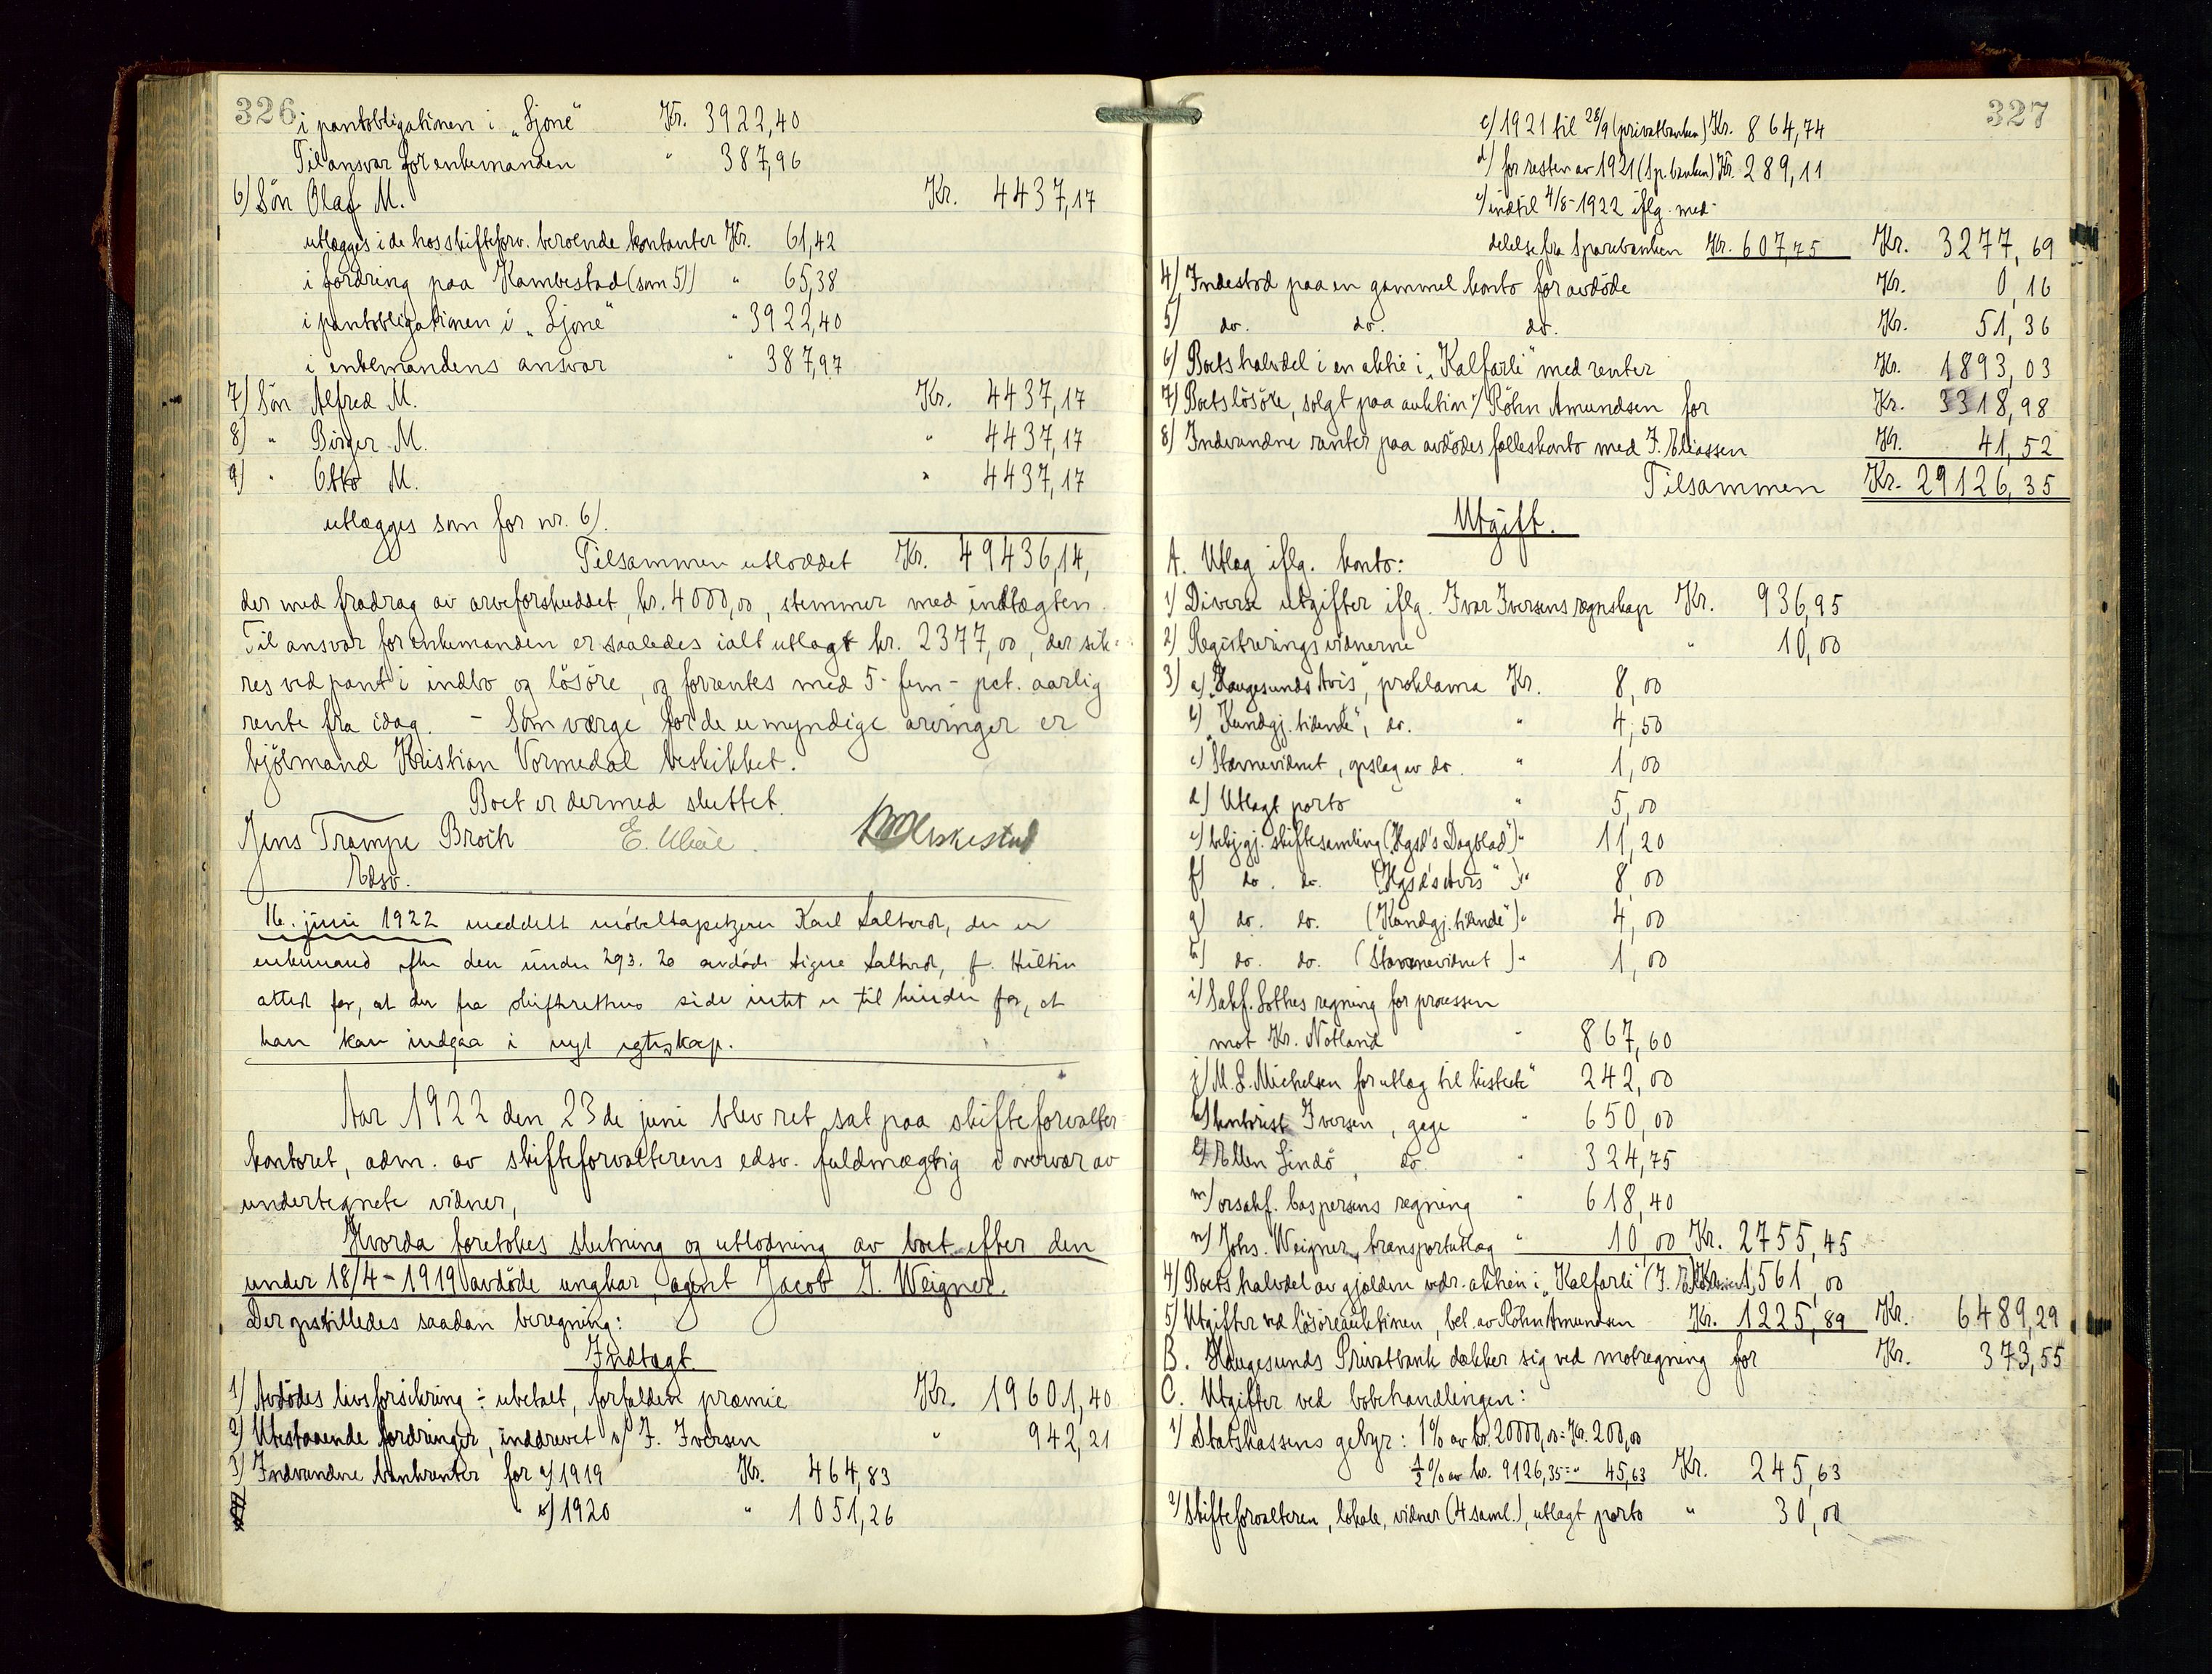 326
i pantobligationen i „Sjone“ Kr. 3922,40
Til ansvar for enkemanden " 387,96
6) Søn Olaf M. Kr. 4437,17
utlægges i de hos skifteforv. beroende kontanter Kr. 61,42
i fordring paa Kambestad (som 5)) " 65,38
i pantobligationen i „Sjone“ " 3922,40
i enkemandens ansvar " 387,97
7) Søn Alfred M. Kr. 4437,17
8) " Birger M. " 4437,17
9) " Otto M. " 4437,17
utlægges som for nr. 6).
Tilsammen utloddet Kr. 49436,14,
der med fradrag av arveforskuddet, kr. 4000,00, stemmer med indtægten.
Til ansvar for enkemanden er saaledes ialt utlagt kr. 2377,00, der sik-
res ved pant i indbo og løsøre, og forrentes med 5 - fem - pct. aarlig
rente fra idag. - Som værge for de umyndige arvinger er
kjøbmand Kristian Vormedal beskikket.
Boet er dermed sluttet.
Jens Trampe Broch E.
Edsv.
16. juni 1922 meddelt møbeltapetserer Karl Salterød, der er
enkemand efter den under 29/3. 20 avdøde Signe Salterød, f. Hultin
attest for, at der fra skifterettens side intet er til hinder for, at
han kan indgaa i nyt egteskap.
Aar 1922 den 23de juni blev ret sat paa skifteforvalter-
kontoret, adm. av skifteforvalterens edsv. fuldmægtig i overvær av
undertegnete vidner,
Hvorda foretokes slutning og utlodning av boet efter den
under 18/4 - 1919 avdøde ungkar, agent Jacob J. Weigner.
Der opstilledes saadan beregning:
Indtægt
1) Avdødes livsforsikring ÷ ubetalt, forfalden præmie Kr. 19601,40
2) Utestaaende fordringer, inddrevet v/ I. Iversen " 942,21
3) Indvundne bankrenter for a) 1919 Kr. 464,83
" b) 1920 " 1051,26
327
c) 1921 til 28/9 (privatbanken) Kr. 864,74
d) for resten av 1921 (Sp. banken) Kr. 289,11
e) indtil 4/8 - 1922 iflg. med-
delelse fra Sparebanken Kr. 607,75 Kr. 3277,69
4) Indestod paa en gammel konto for avdøde Kr. 0,16
5) do. do. do. Kr. 51,36
6) Boets halvdel i en aktie i „Kalfarli“ med renter Kr. 1893,03
7) Boets løsøre, solgt paa auktion v/ Røhn Amundsen for Kr. 3318,98
8) Indvundne renter paa avdødes fælleskonto med J. Eliassen Kr. 41,52
Tilsammen Kr. 29126,35
Utgift.
A. Utlæg iflg. konto:
1) Diverse utgifter iflg. Ivar Iversens regnskap Kr. 936,95
2) Registreringsvidnerne " 10,00
3) a) „Haugesunds Avis“, proklama Kr. 8,00
b) „Kundgj. tidende“, do. " 4,50
c) Stævnevidnet, opslag av do. " 1,00
d) Utlagt porto " 5,00
e) bekjgj. skiftesamling („Hgsd's Dagblad“) " 11,20
f) do. do. („Hgsd's Avis“) " 8,00
g) do. do. („Kundgj. tidende“) " 4,00
h) do. do. (Stævnevidnet) " 1,00
i) Sakf. Sothes regning for processen
mot Kr. Nøtland " 867,60
j) M. S. Michelsen for utlæg til bistede " 242,00
k) kontorist Iversen, gage " 650,00
l) Ellen Lindø, do. " 324,75
m) orsakf. Caspersens regning " 618,40
n) Johs. Weigner, transportutlæg " 10,00 Kr. 2755,45
4) Boets halvdel av gjælden vedr. aktien i „Kalfarli“ (J. Eliassen) Kr. 1561,00
5) Utgifter ved løsøreauktionen, bet. av Røhn Amundsen Kr. 1225,89 Kr. 6489,29
B. Haugesunds Privatbank dækker sig ved motregning for Kr. 373,55
C. Utgifter ved bobehandlingen:
1) Statskassens gebyr: 1% av kr. 20000,00 = Kr. 200,00
½% av kr. 9126,35 = " 45,63 Kr. 245,63
2) Skifteforvalteren, lokale, vidner (4 saml.), utlagt porto " 30,00